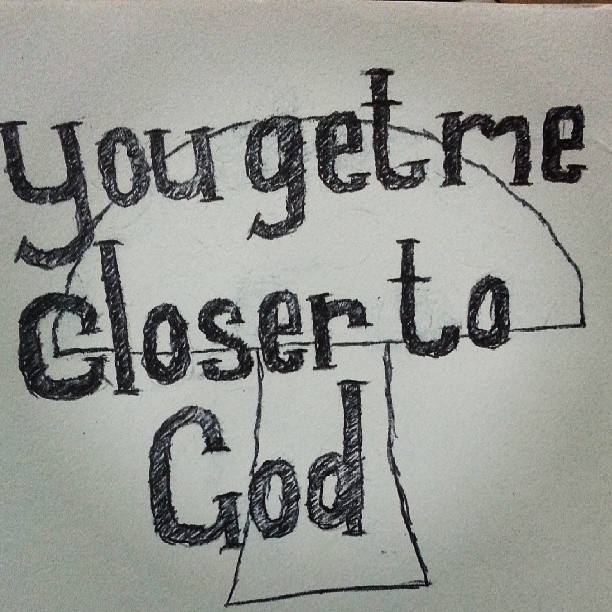 you get me
closer to
God